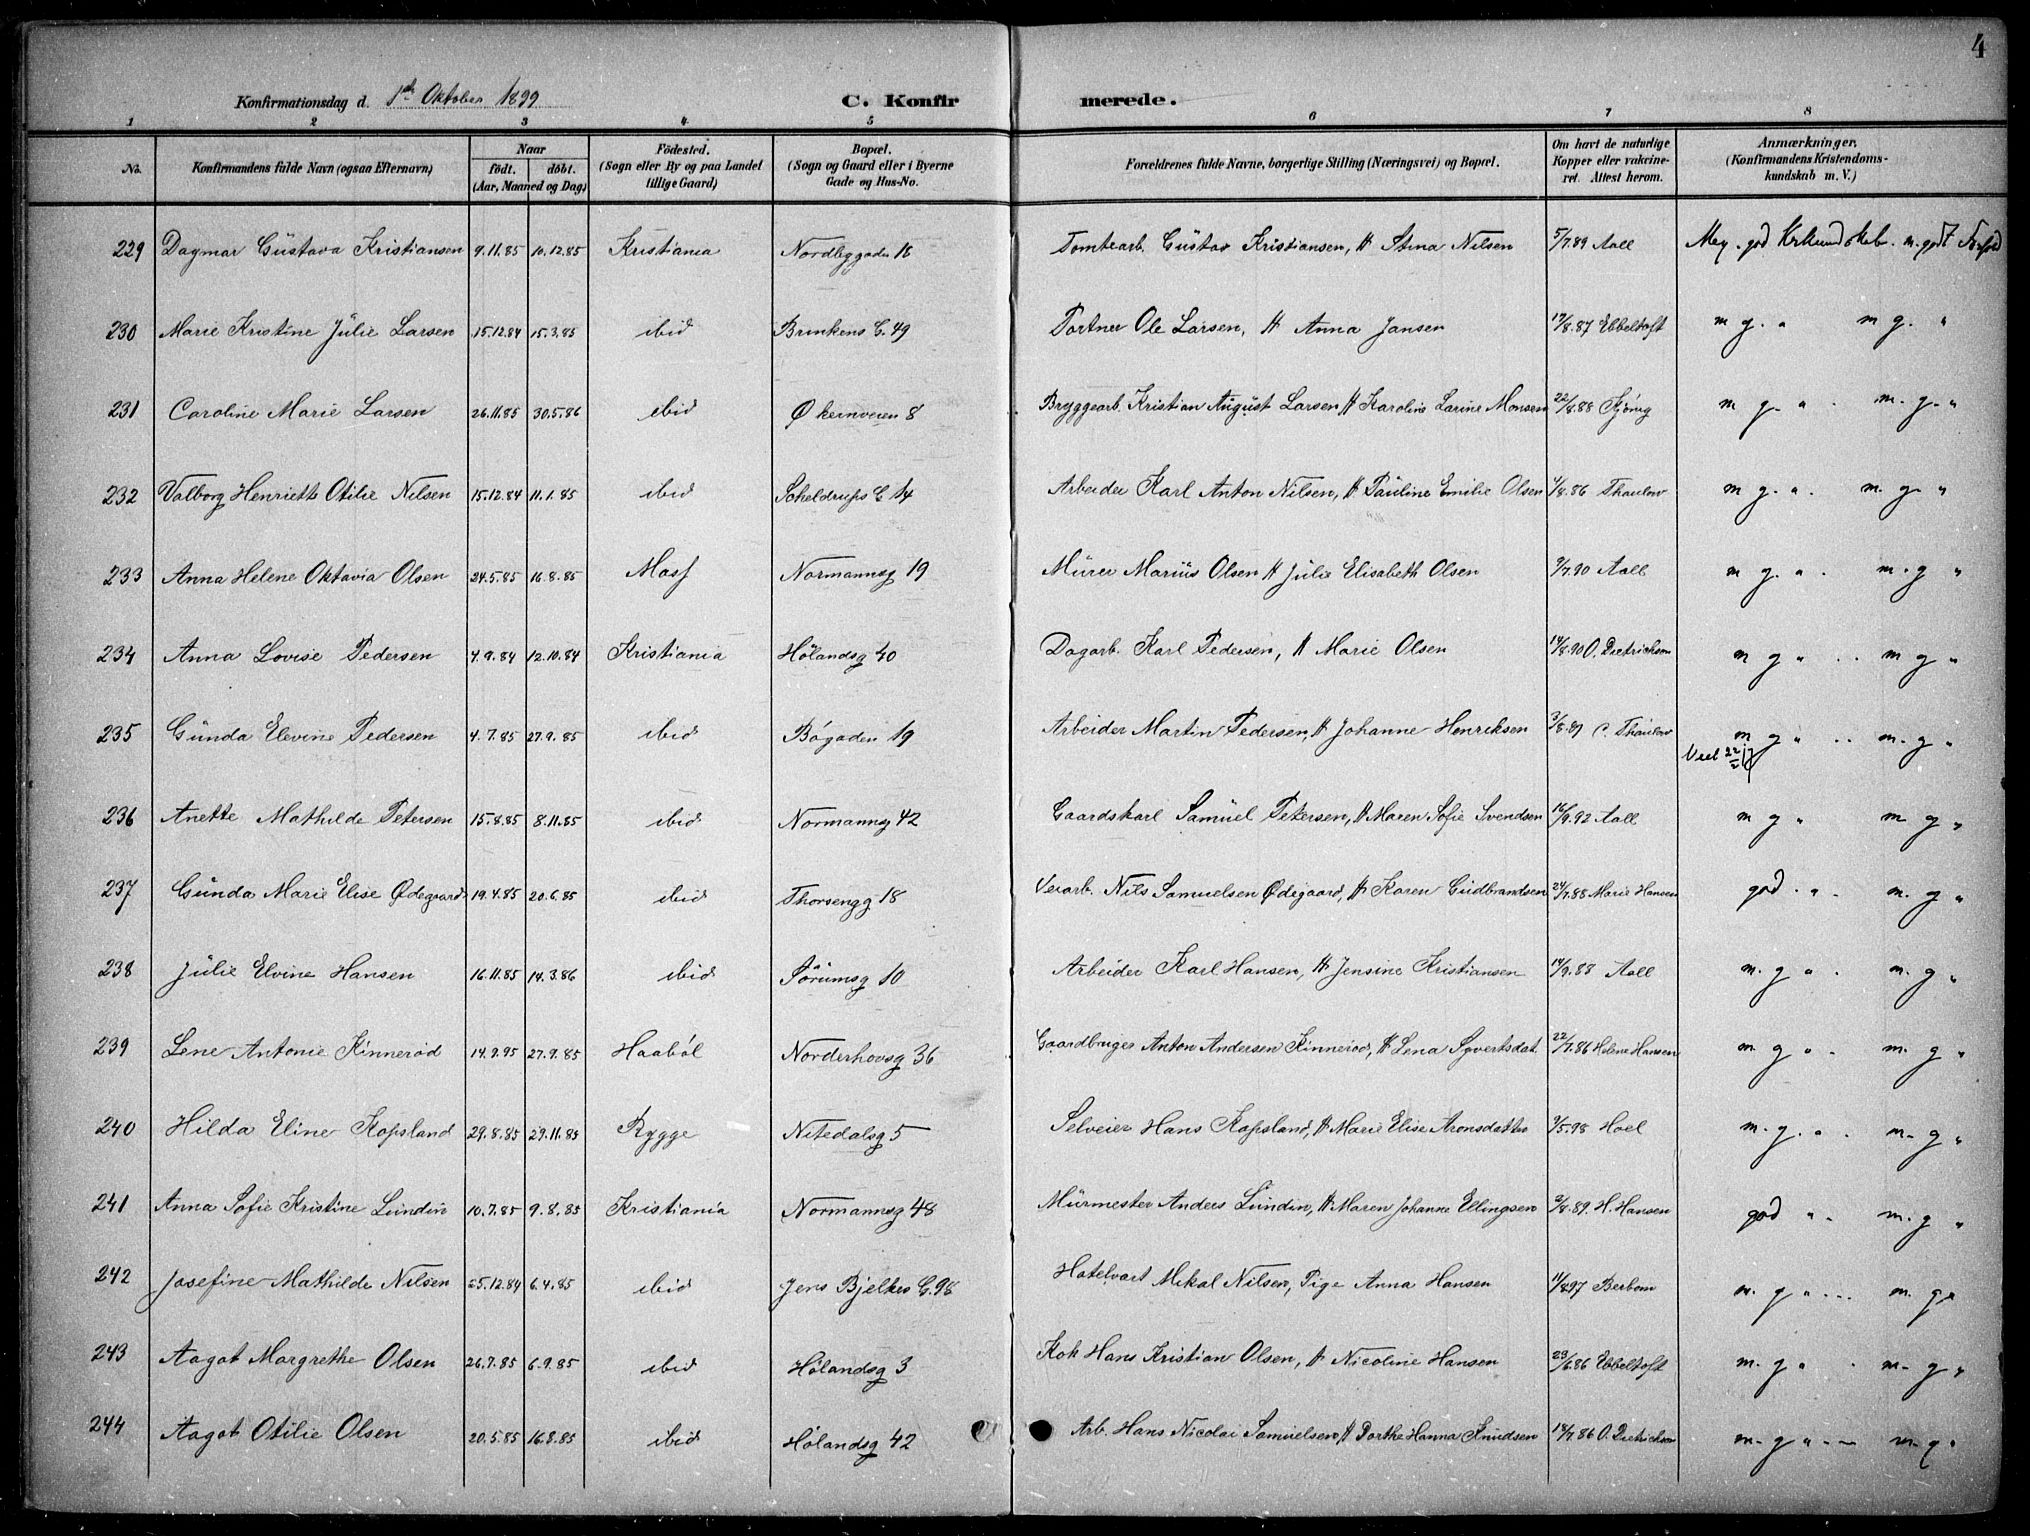 4
Konfirmationsdag d. 1ste Oktober 1899 C. Konfirmerede.
1 2 3 4 5 6 7 8
No. Konfirmandens fulde Navn (ogsaa Efternavn) Naar födt. döbt. (Aar, Maaned og Dag) Födested. (Sogn eller By og paa Landet tillige Gaard) Bopæl. (Sogn og Gaard eller i Byerne Gade og Hus-No. Forældrenes fulde Navne, borgerlige Stilling (Næringsvei) og Bopæl. Om havt de naturlige Kopper eller vakcineret. Attest herom. Anmærkninger. (Konfirmandens Kristendomskundskab m. V.)
229 Dagmar Gustava Kristiansen 9.11.85 10.12.85 Kristiania Nordbygaden 16 Tomtearb. Gustav Kristiansen, H Stina Nilsen 5/7.89 Aall Meg. god Krkundskab. m. godt Forhold
230 Marie Kristine Julie Larsen 15.12.84 15.3.85 ibid Brinkens G. 49 Portner Ole Larsen, H Anna Jansen 17/8.87 Ebbeltoft m g. " m g. "
231 Caroline Marie Larsen 26.11.85 30.5.86 ibid Økernveien 8 Bryggearb. Kristian August Larsen H Karoline Larine Monsen 22/8.88 m g. " m. g. "
232 Valborg Henriette Otilie Nilsen 15.12.84 11.1.85 ibid Scheldrups G 14 Arbeider Karl Anton Nilsen, H Pauline Emilie Olsen 1/8.86 Thaulow m g. " m. g. "
233 Anna Helene Oktavia Olsen 24.5.85 16.8.85 Moss Normannsg 19 Murer Marius Olsen H Julie Elisabeth Olsen 9/7.90 Aall m g. " m. g "
234 Anna Lovise Pedersen 4.9.84 12.10.84 Kristiania Hølandsg 40 Dagarb. Karl Pedersen, H Marie Olsen 14/8.90 O. Dietrichson m g " m g "
235 Gunda Elevine Pedersen 4.7.85 27.9.85 ibid Bøgaden 19 Arbeider Martin Pedersen, H Johanne Henriksen 3/8.87 C. Thaulow m g " m. g "
Viel 22/2 17
236 Anette Mathilde Petersen 15.8.85 8.11.85 ibid Normannsg 42 Gaardskarl Samuel Petersen, H Maren Sofie Svendsen 16/9.92 Aall m g " m g "
237 Gunda Marie Elise Ødegaard 19.4.85 20.6.85 ibid Thorsengg 18 Veiarb. Nils Samuelsen Ødegaard, H Karen Gudbrandsen 24/7.88 Marie Hansen god " m. g "
238 Julie Elvine Hansen 16.11.85 14.3.86 ibid Sørumsg 10 Arbeider Karl Hansen, H Jensine Kristiansen 14/9.88 Aall m. g " m. g "
239 Lene Antonie Kinnerød 14.9.95 27.9.85 Haabøl Norderhovsg 36 Gaardbruger Anton Andersen Kinnerød, H Lena Syvertsdat. 22/7.86 Helene Hansen m. g " m. g "
240 Hilda Eline Kopsland 29.8.85 29.11.85 Rygge Nitedalsg 5 Selveier Hans Kopsland, H Marie Elise Aronsdatter 9/5.98 Hoel m. g. " m. g "
241 Anna Sofie Kristine Lundin 10.7.85 9.8.85 Kristiania Normannsg 48 Murmester Anders Lundin, H Maren Johanne Ellingsen 2/8.89. H. Hansen god " m. g "
242 Josefine Mathilde Nilsen 25.12.84 6.4.85 ibid Jens Bjelkes G. 98 Hotelvært Mikal Nilsen, Pige Anna Hansen 11/8.97 Berbom m. g " m. g "
243 Aagot Margrethe Olsen 26.7.85 6.9.85 ibid Hølandsg 3 Kok Hans Kristian Olsen, H Nicoline Hansen 23/6.86 Ebbeltoft m. g " m. g "
244 Aagot Otilie Olsen 20.5.85 16.8.85 ibid Hølandsg 42 Arb. Hans Nicolai Samuelsen H Dorthe Hanna Knudsen 14/7.86 O. Dietrichson m. g " m. g "